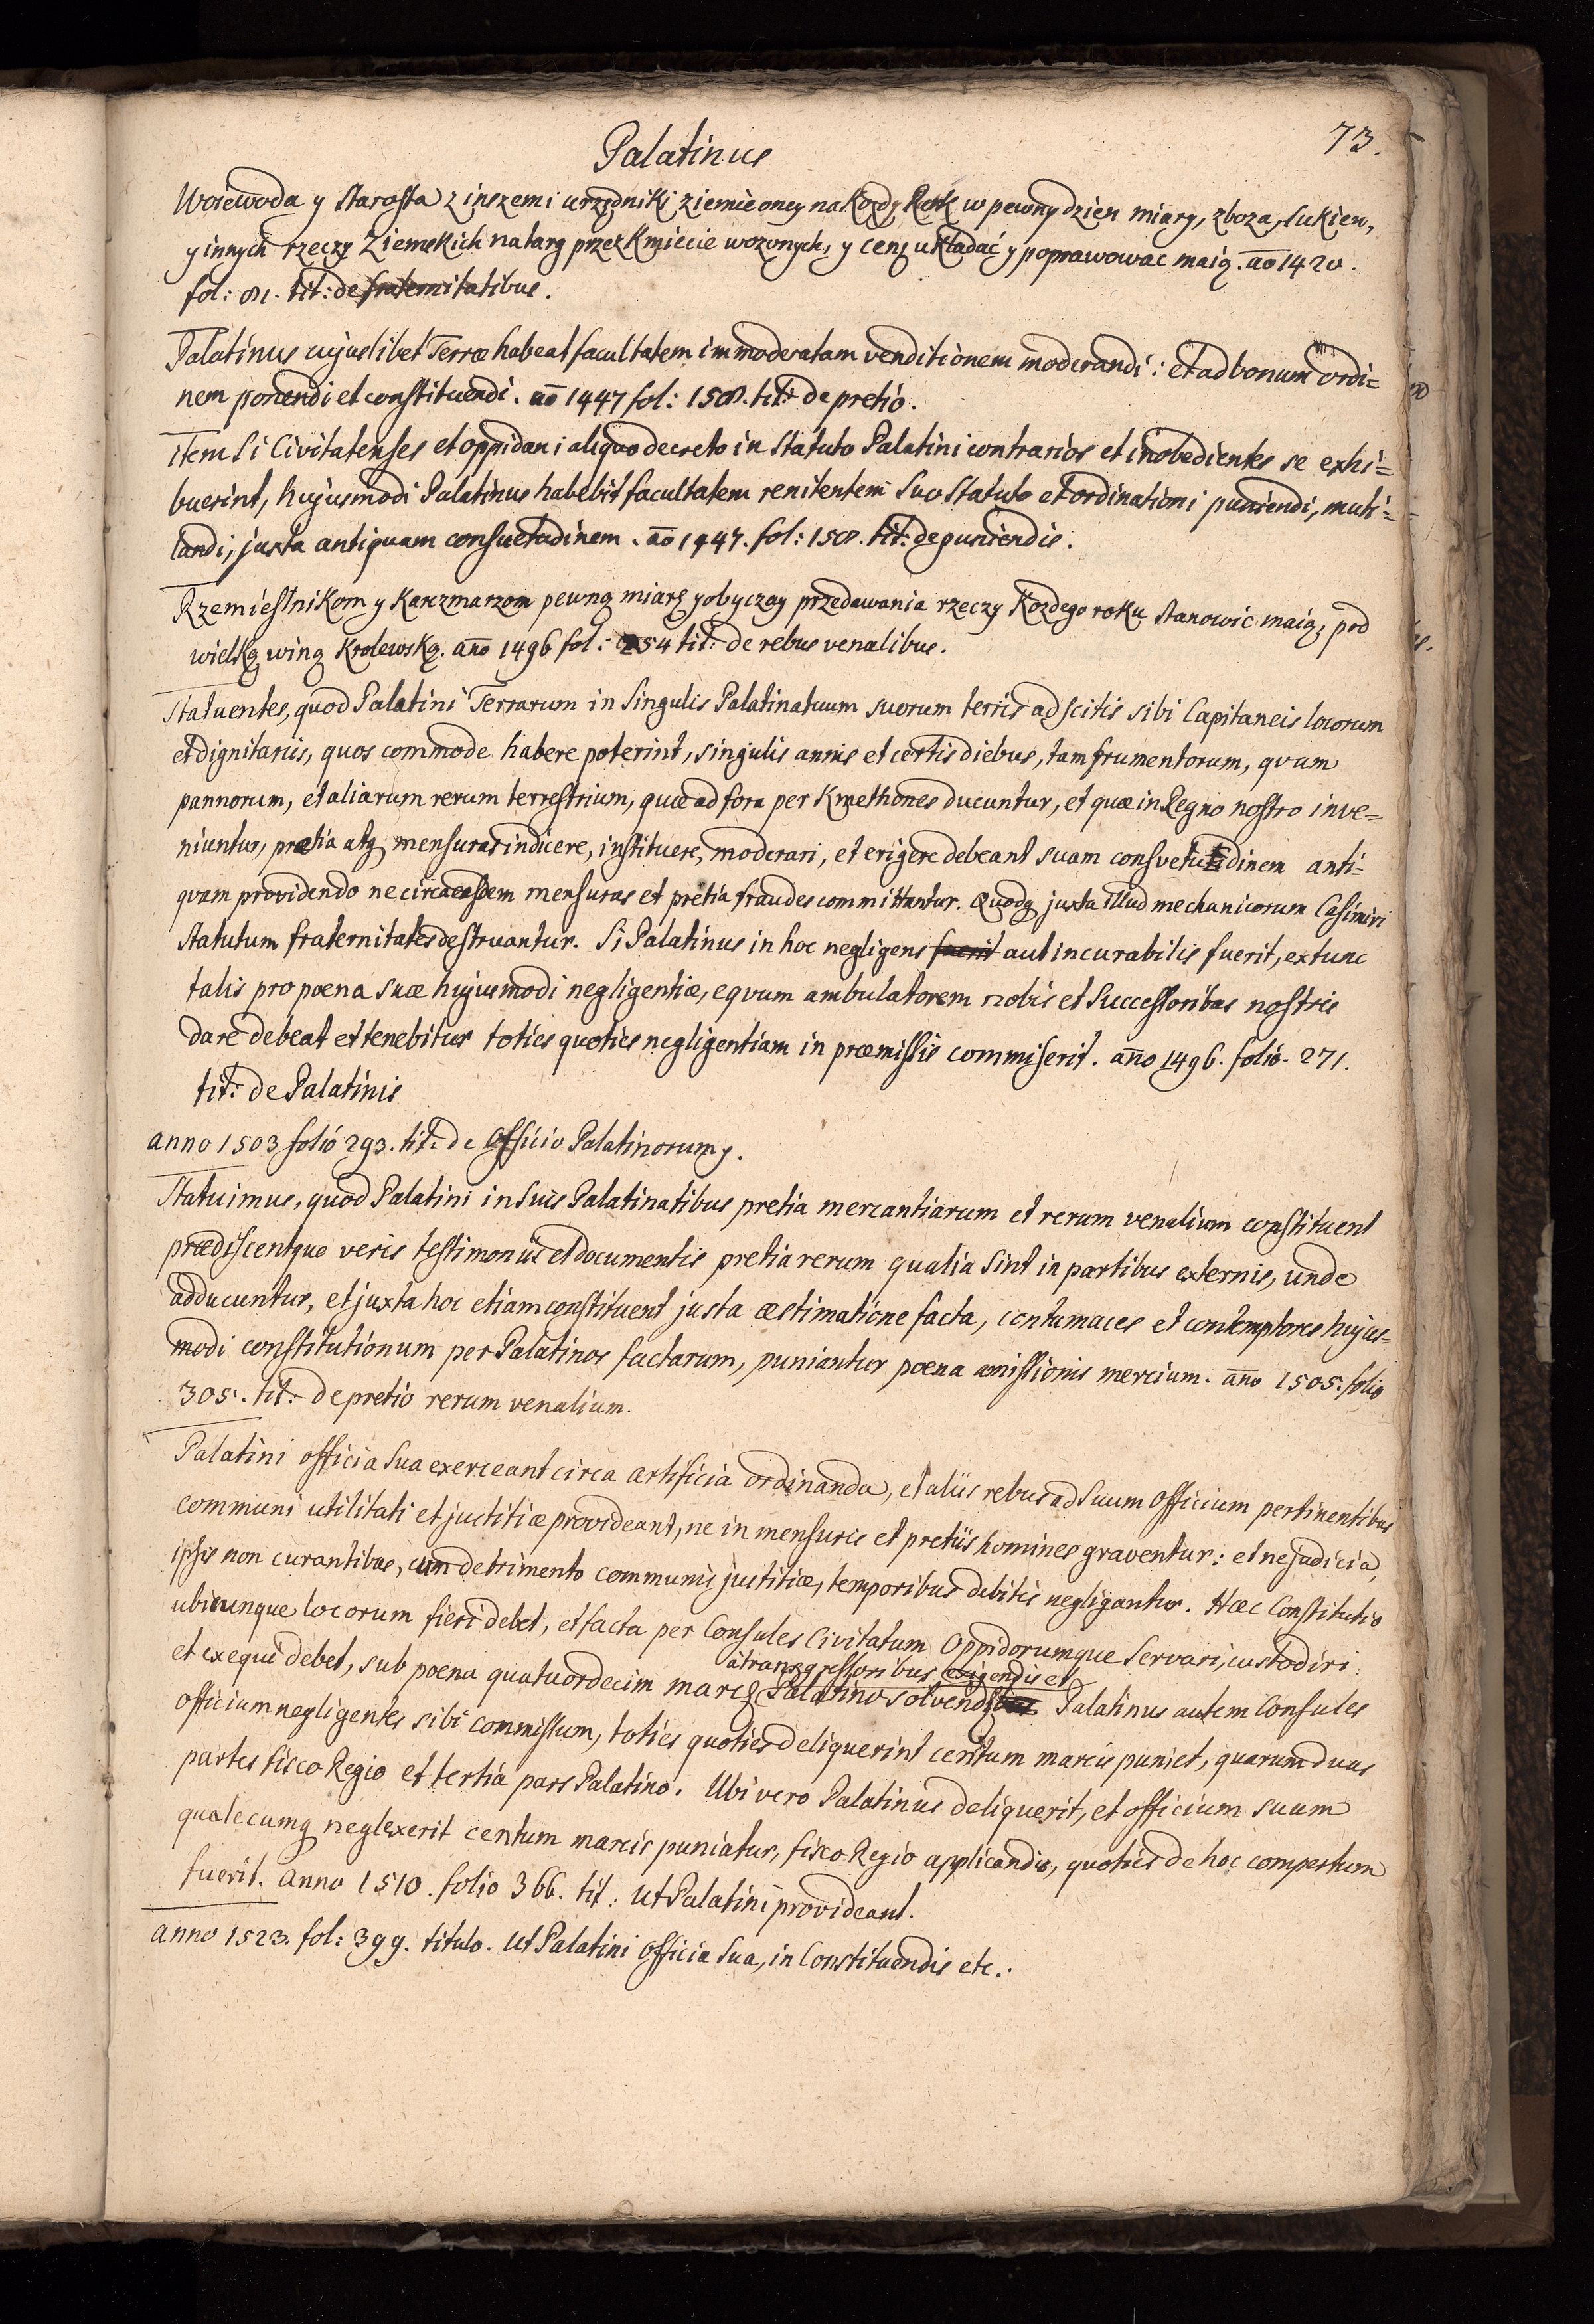 73.
Palatinus
Woiewoda y Starosta z inszemi urzędniki ziemie oney na Kozdy Rok w pewny dzien miary, zboza, sukien,
y innych rzeczy Ziemskich na targ przez Kmiecie wozonych, y cenę układać y poprawowac maią. ao 1420.
fol: 81. tit: de fraternitatibus.
Palatinus cujuslibet Terræ habeat facultatem immoderatam venditionem moderandi: et ad bonum ordi=
nem ponendi et constituendi. ao 1447 fol: 158. tit: de pretio.
Item Si Civitatenses et oppidani aliquo decreto in Statuto Palatini contrarios et inobedientes se exhi=
buerint, hujusmodi Palatinus habebit facultatem renitentem Suo Statuto et ordinationi puniendi, muti=
landi, juxta antiquam consuetudinem. ao 1447. fol: 158. tit: de puniendis.
Rzemiesłnikom y Karczmarzom pewną miarę y obyczay przedawania rzeczy Kozdego roku stanowic maią, pod
wielką winą Krolewską. año 1496 fol: 254 tit: de rebus venalibus.
Statuentes, quod Palatini Terrarum in Singulis Palatinatuum suorum terris adscitis sibi Capitaneis locorum
et dignitariis, quos commode habere poterint, singulis annis et certis diebus, tam frumentorum, qvam
pannorum, et aliarum rerum terrestrium, quæ ad fora per Kmethones ducuntur, et quæ in Regno nostro inve=
niuntur, pretia atq mensuras indicere, instituere, moderari, et erigere debeant suam consvetudinem anti=
qvam providendo ne circa easdem mensuras et pretia fraudes committantur. Quodq juxta illud mechanicorum Casimiri
statutum fraternitates destruantur. Si Palatinus in hoc negligens fuerit aut incurabilis fuerit, extunc
talis pro poena suæ hujusmodi negligentiæ, eqvum ambulatorem nobis et Successoribus nostris
dare debeat et tenebitur toties quoties negligentiam in præmissis commiserit. año 1496. folio. 271.
tit: de Palatinis
anno 1503 folio 293. tit: de Officio Palatinorum.
Statuimus, quod Palatini in Suis Palatinatibus pretia mercantiarum et rerum venalium constituent
prædiscentque veris testimoniis et documentis pretia rerum qualia Sint in partibus externis, unde
adducuntur, et juxta hoc etiam constituent justa æstimatione facta, contumaces et contemptores hujus=
modi constitutionum per Palatinos factarum, puniantur poena amissionis mercium. año 1505. folio
305. tit: de pretio rerum venalium.
Palatini officia Sua exerceant circa artificia ordinanda, et aliis rebus ad Suum officium pertinentibus
communi utilitati et justitiæ provideant, ne in mensuris et pretiis homines graventur: et ne judicia,
ipsis non curantibus, cum detrimento communis justitiæ, temporibus debitis negligantur. Hæc Constitutio
ubicunque locorum fieri debet, et facta per Consules Civitatum Oppidorumque Servari, custodiri
à transgressoribus exigendis et
et exequi debet, sub poena quatuordecim marcę Palatino solvendę Palatinus autem Consules
officium negligentes sibi commissum, toties quoties deliquerint centum marcis puniet, quarum duas
partes fisco Regio et tertia pars Palatino. Ubi vero Palatinus deliquerit, et officium suum
qualecumq neglexerit centum marcis puniatur, fisco Regio applicandis, quoties de hoc compertum
fuerit. anno 1510. folio 366. tit: Ut Palatini provideant.
anno 1523. fol: 399. titulo. Ut Palatini Officia Sua, in Constituendis etc.